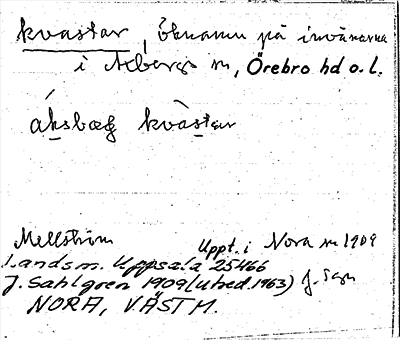 kvastar, öknamn på invånarna
i Axbergs sn, Örebro hd o.l.
áksbæg kvàstar
Mellström Uppt. i Nora sn 1909
Landsm. Uppsala 25466
J. Sahlgren 1909 (utred. 1963) J. Sgn
NORA, VÄSTM.